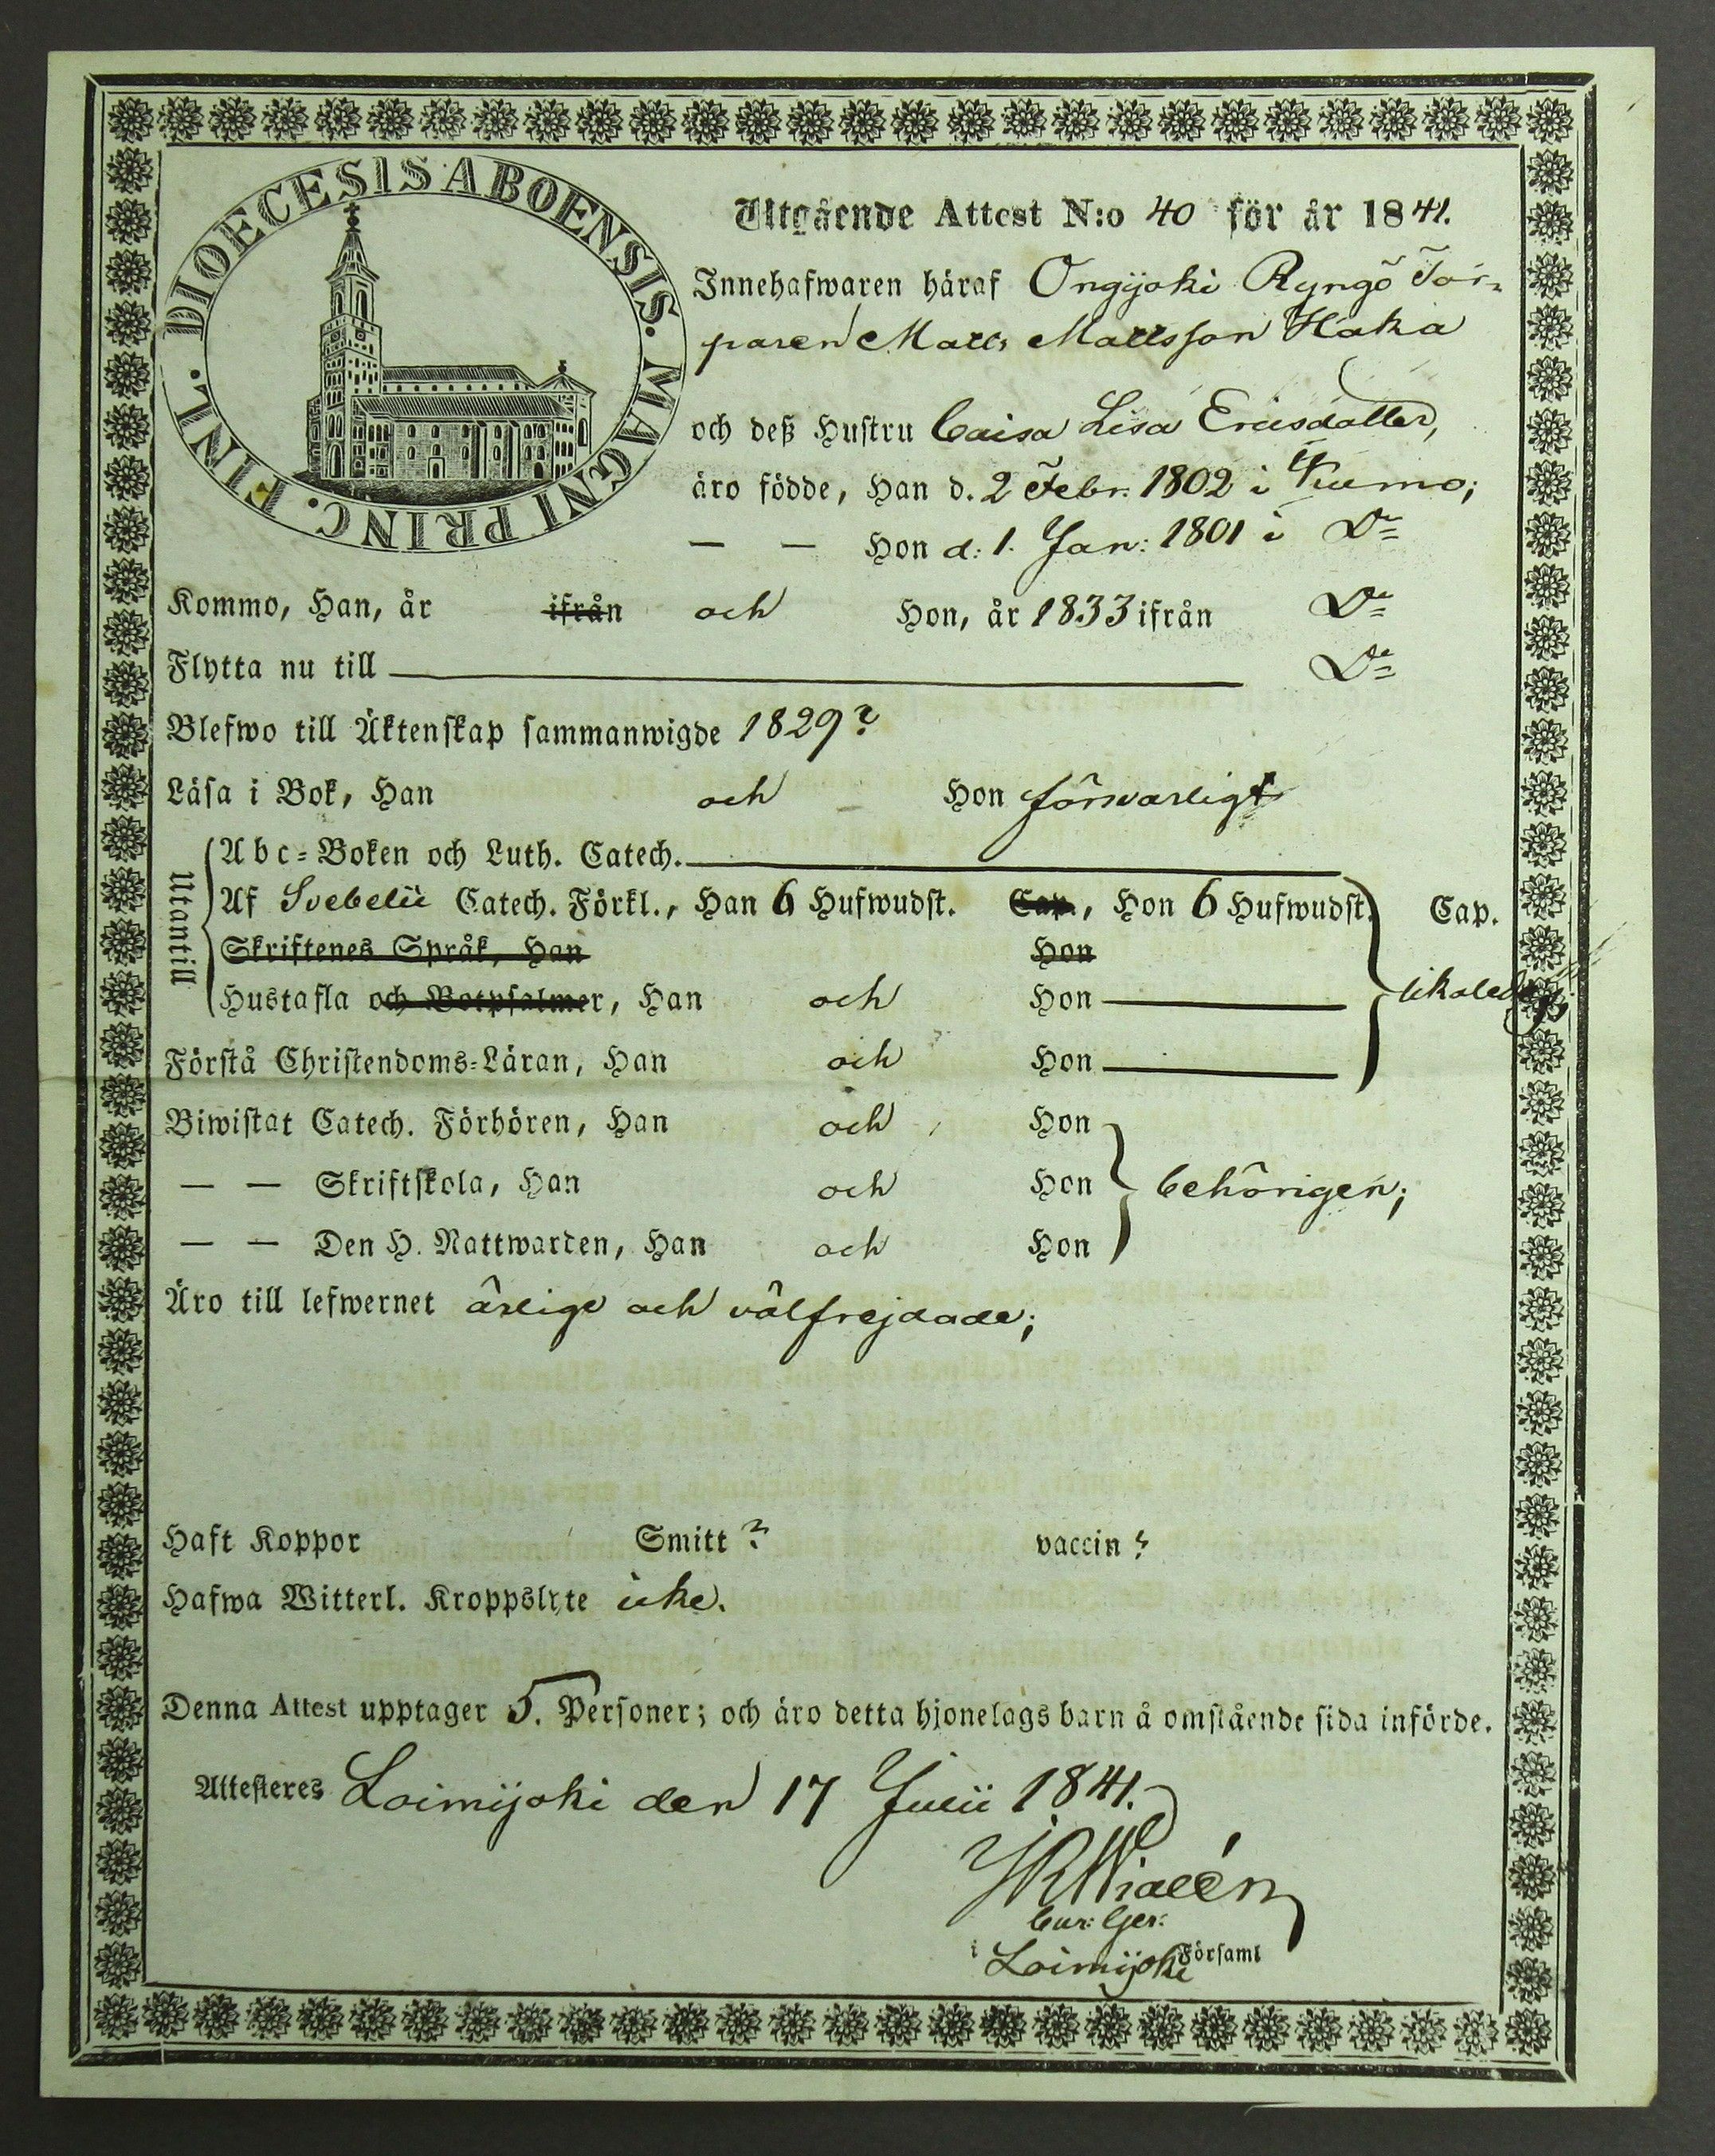 DIOECESIS ABOENSIS. MAGNI PRINC. FINL.
Utgående Attest N:o 40 för år 1841.
Innehafwaren häraf Ongijoki Ryngö Tor-
paren Matts Mattsson Haka
och deß Hustru Caisa Lisa Ericsdotter,
äro födde, Han d. 2 Febr. 1802 i Kumo;
— — Hon d: 1. Jan: 1801 i Do
Kommo, Han, år ifrån och Hon, år 1833 ifrån Do
Flytta nu till Do
Blefwo till Äktenskap sammanwigde 1829?
Läsa i Bok, Han och Hon försvarligt
Utantill
Abc-Boken och Luth. Catech.
Af Svebelii Catech. Förkl., Han 6 Hufwudst. Cap., Hon 6 Hufwudst. Cap.
Skriftenes Språk, Han Hon
Hustafla och Botpsalmer, Han och Hon likaledes;
Förstå Christendoms-Läran, Han och Hon
Biwistat Catech. Förhören, Han och Hon
— — Skriftskola, Han och Hon behörigen;
— — Den H. Nattwarden, Han och Hon
Äro till lefwernet ärlige och välfrejdade;
Haft Koppor Smitt? vaccin?
Hafwa Witterl. Kroppslyte icke.
Denna Attest upptager 5. Personer; och äro detta hjonelags barn å omstående sida införde.
Attesteres Loimijoki den 17 Julii 1841.
Cur: Ger:
i Loimijoki Församl